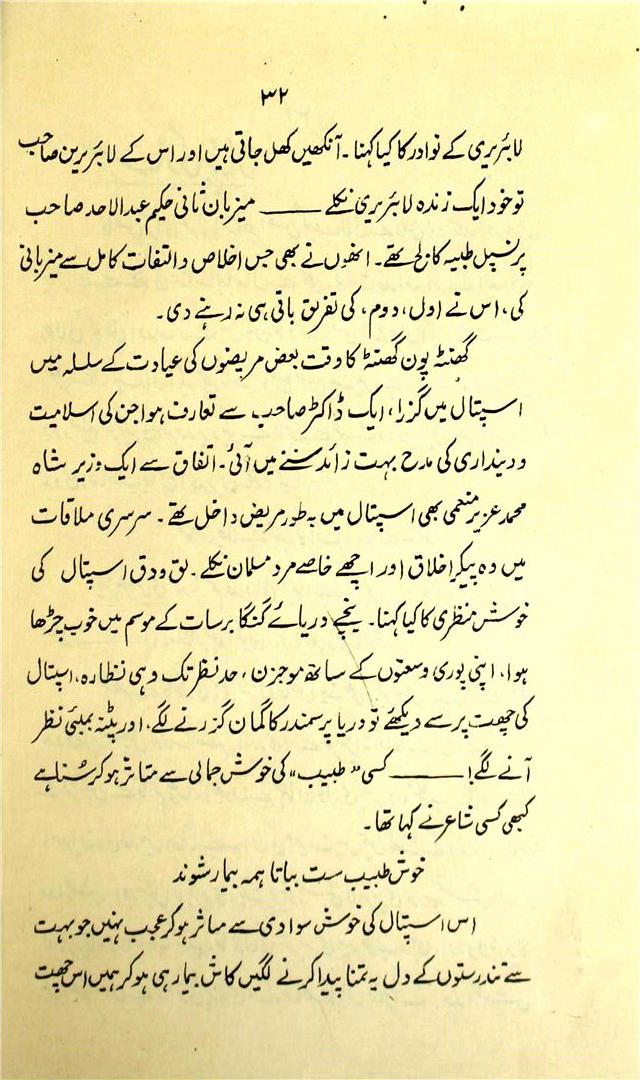 ۳۲
لائبریری کے نوادر کا کیا کہنا ۔ آنکھیں کھل جاتی ہیں اور اس کے لائبریرین صاحب
تو خود ایک زندہ لائبریری نکلے ـــــــ میزبان ثانی حکیم عبدالاحد صاحب
پرنسپل طبیہ کالج تھے ۔ انھوں نے بھی جس اخلاص و التفات کامل سے میزبانی
کی، اس نے اول، دوم، کی تفریق باقی ہی نہ رہنے دی ۔
گھنٹہ پون گھنٹہ کا وقت بعض مریضوں کی عیادت کے سلسلہ میں
اسپتال میں گزرا، ایک ڈاکٹر صاحب سے تعارف ہوا جن کی اسلامیت
و دینداری کی مدح بہت زائد سننے میں آئی ۔ اتفاق سے ایک وزیر شاہ
محمد عزیر منعمی بھی اسپتال میں بہ طور مریض داخل تھے ۔ سرسری ملاقات
میں وہ پیکر اخلاق اور اچھے خاصے مرد مسلمان نکلے ۔ لق و دق اسپتال کی
خوش منظری کا کیا کہنا ۔ نیچے دریائے گنگا برسات کے موسم میں خوب چڑھا
ہوا، اپنی پوری وسعتوں کے ساتھ موجزن، حد نظر تک وہی نظارہ، اسپتال
کی چھت پر سے دیکھئے تو دریا پر سمندر کا گمان گزرنے لگے، اور پٹنہ بمبئی نظر
آنے لگے! ـــــــ کسی "طبیب" کی خوش جمالی سے متاثر ہو کر سُنا ہے
کبھی کسی شاعر نے کہا تھا ۔
خوش طبیب ست بیا تا ہمہ بیمار شوند
اس اسپتال کی خوش سوادی سے متاثر ہو کر عجب نہیں جو بہت
سے تندرستوں کے دل یہ تمنا پیدا کرنے لگیں کاش بیمار ہی ہو کر ہمیں اس چھت